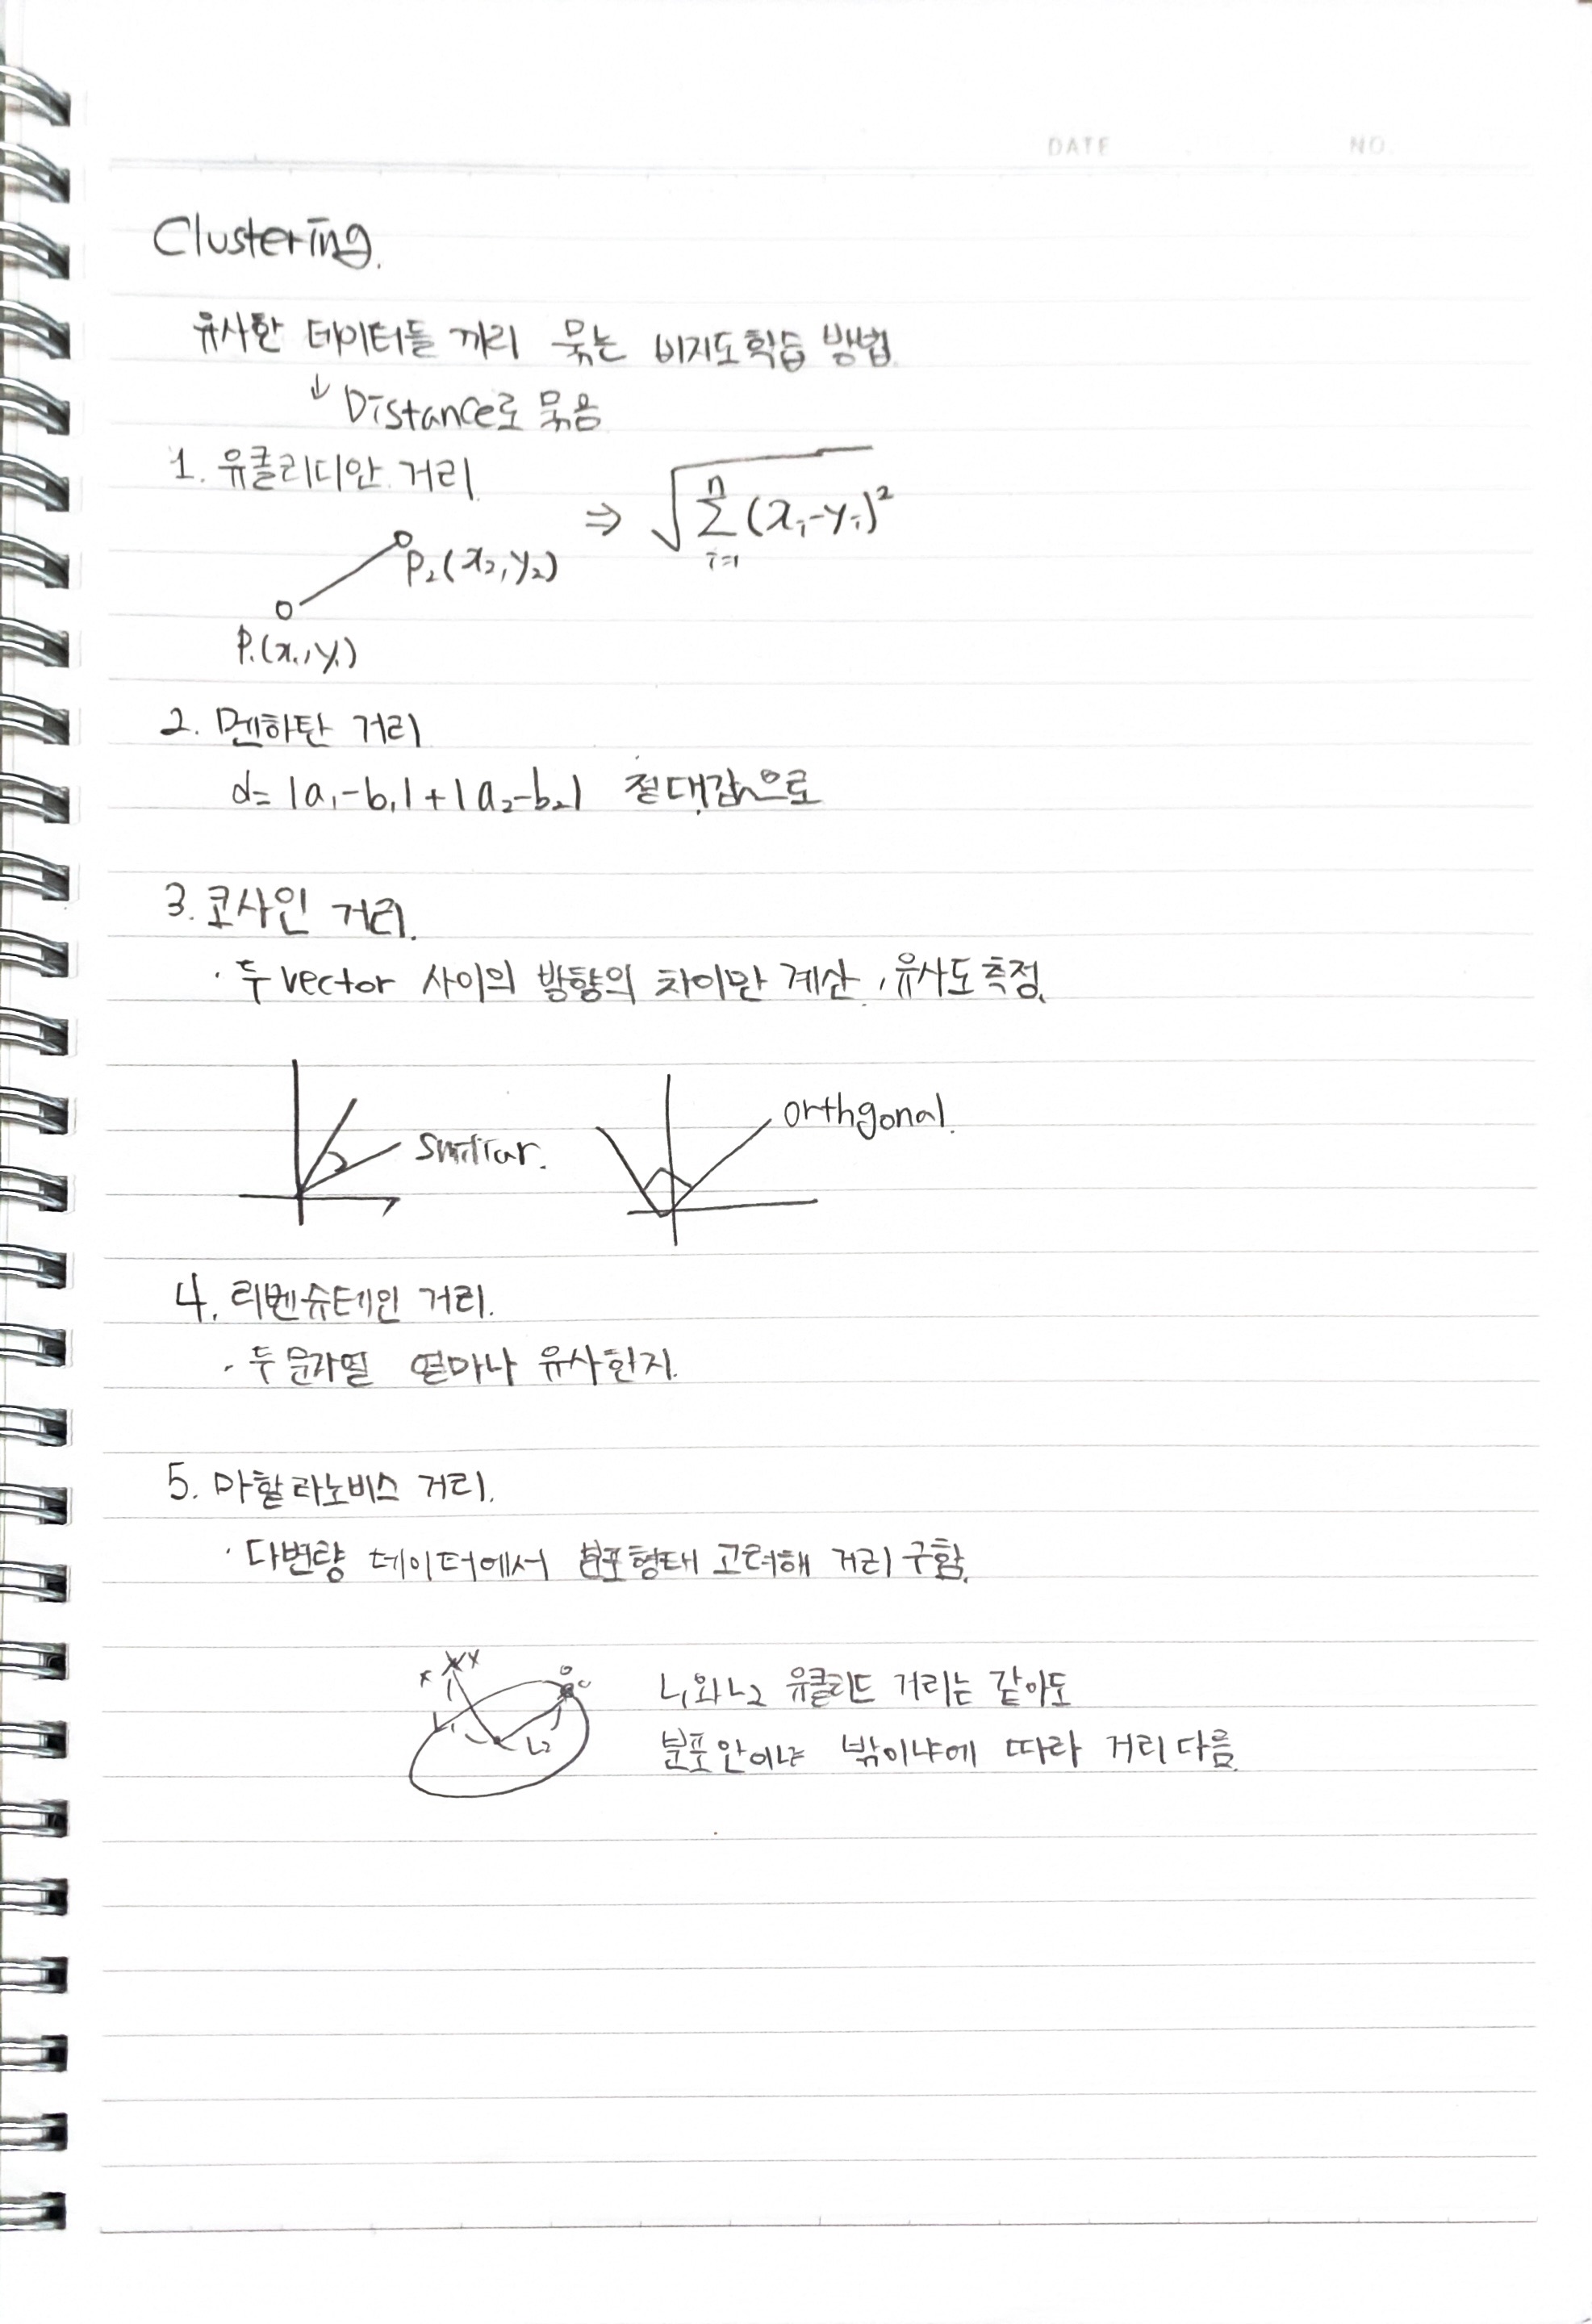 DATE NO.
Clustering.
유사한 데이터들 끼리 묶는 비지도학습 방법
↓ Distance로 묶음
1. 유클리디안 거리
⇒ √ Σ (xᵢ-yᵢ)²
n
i=1
P₂(x₂,y₂)
P₁(x₁,y₁)
2. 멘하탄 거리
d= |a₁-b₁|+|a₂-b₂| 절대값으로
3. 코사인 거리.
· 두 vector 사이의 방향의 차이만 계산, 유사도측정.
similar.
orthgonal.
4. 리벤슈테인 거리.
· 두 문자열 얼마나 유사한지.
5. 마할라노비스 거리.
· 다변량 데이터에서 분포형태 고려해 거리 구함.
L₁
L₂
L₁와 L₂ 유클리드 거리는 같아도
분포안이냐 밖이냐에 따라 거리다름.